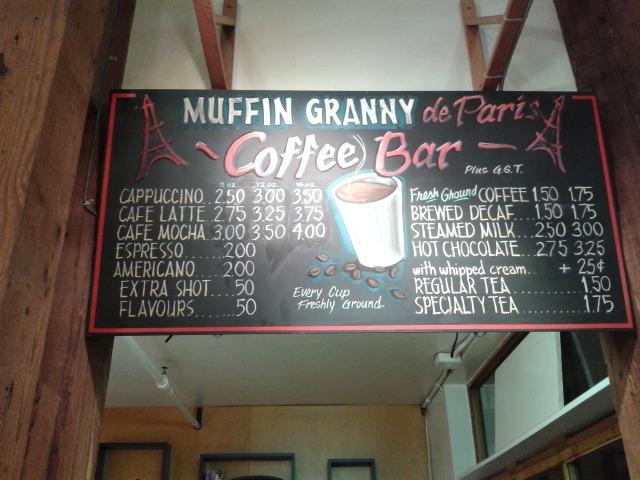 MUFFIN GRANNY de Paris
Coffee Bar
Plus G.S.T.
8 oz. 12 oz. 16 oz.
CAPPUCCINO..2.50 3.00 3.50
CAFE LATTE..2.75 3.25 3.75
CAFE MOCHA..3.00 3.50 4.00
ESPRESSO......2.00
AMERICANO.....2.00
EXTRA SHOT....50
FLAVOURS......50
Every Cup
Freshly Ground.
Fresh Ground COFFEE 1.50 1.75
BREWED DECAF....1.50 1.75
STEAMED MILK...2.50 3.00
HOT CHOCOLATE...2.75 3.25
with whipped cream.... + 25¢
REGULAR TEA..........1.50
SPECIALTY TEA..........1.75